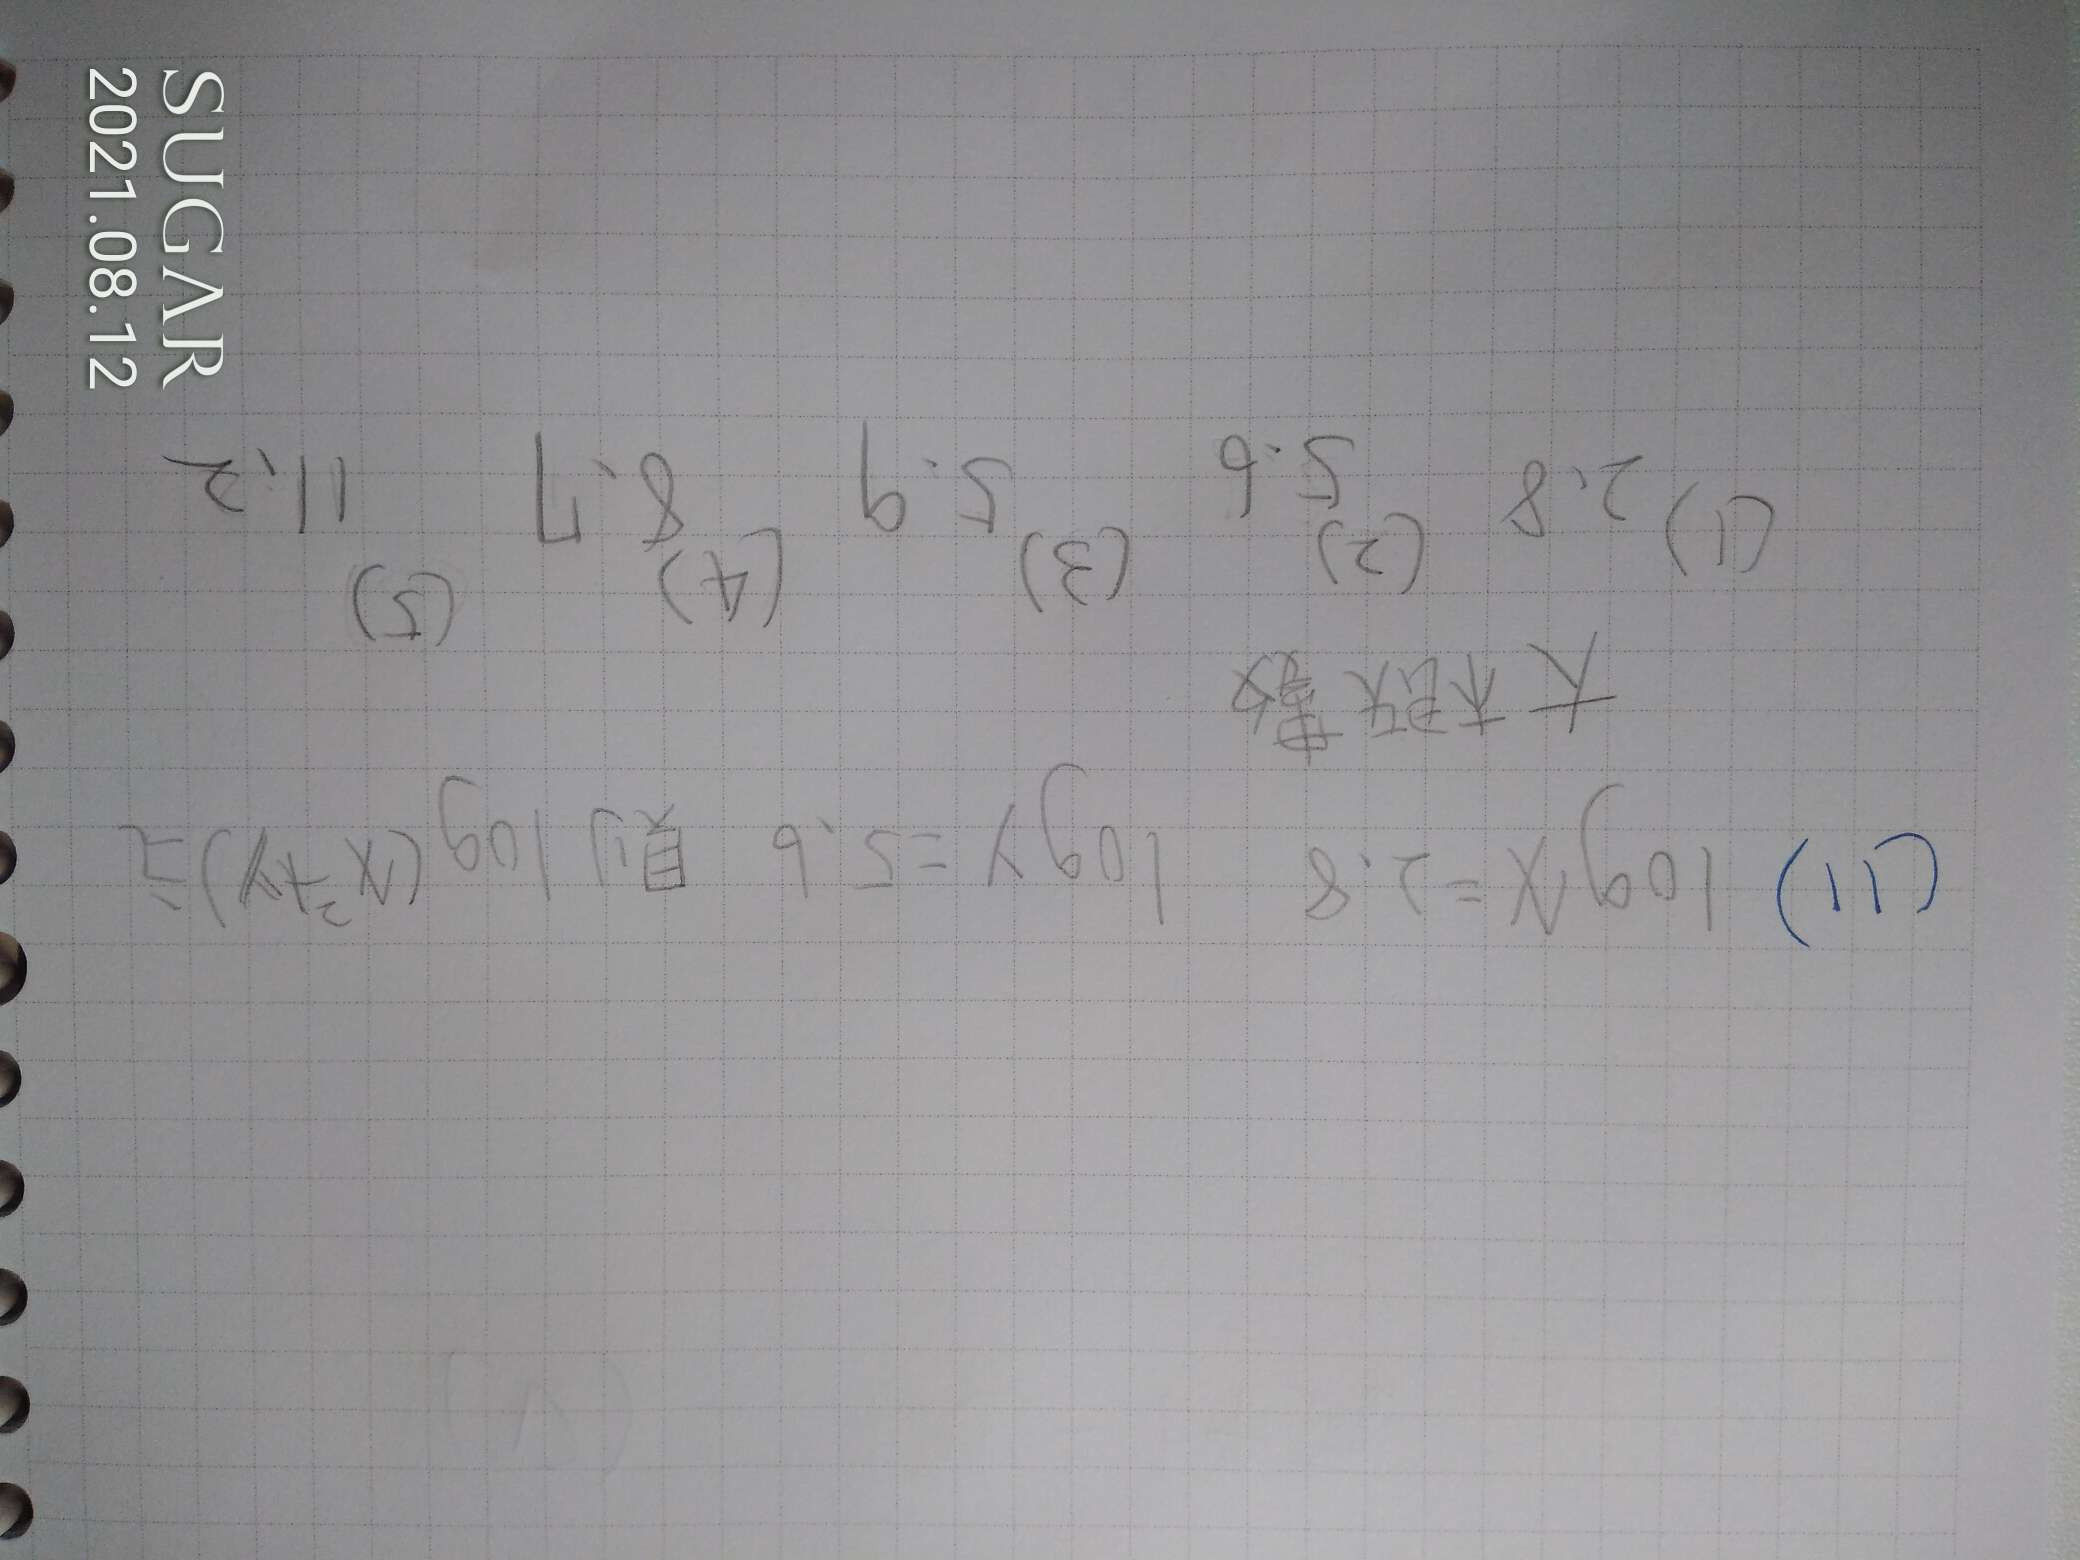 (11) logx=2.8 logy=5.6 則log(x²+y)之
大概數
(1) 2.8 (2) 5.6 (3) 5.9 (4) 8.7 (5) 11.2
SUGAR
2021.08.12